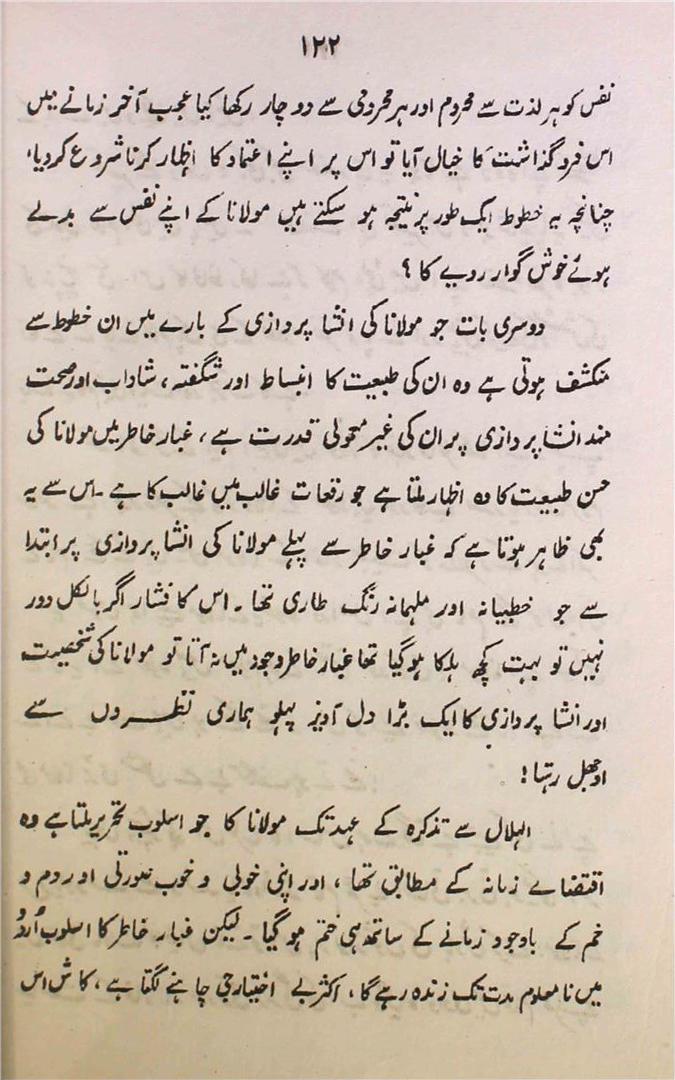 ۱۲۲
نفس کو ہر لذت سے محروم اور ہر محرومی سے دوچار رکھا کیا عجب آخر زمانے میں
اس فروگذاشت کا خیال آیا تو اس پر اپنے اعتماد کا اظہار کرنا شروع کر دیا،
چنانچہ یہ خطوط ایک طور پر نتیجہ ہو سکتے ہیں مولانا کے اپنے نفس سے بدلے
ہوئے خوش گوار رویے کا ؟
دوسری بات جو مولانا کی انشا پردازی کے بارے میں ان خطوط سے
منکشف ہوتی ہے وہ ان کی طبیعت کا انبساط اور شگفتہ، شاداب اور صحت
مند انشا پردازی پر ان کی غیر معمولی قدرت ہے، غبار خاطر میں مولانا کی
حسن طبیعت کا وہ اظہار ملتا ہے جو رقعات غالب میں غالب کا ہے ۔ اس سے یہ
بھی ظاہر ہوتا ہے کہ غبار خاطر سے پہلے مولانا کی انشا پردازی پر ابتدا
سے جو خطیبانہ اور ملہمانہ رنگ طاری تھا ۔ اس کا فشار اگر بالکل دور
نہیں تو بہت کچھ ہلکا ہو گیا تھا غبار خاطر وجود میں نہ آتا تو مولانا کی شخصیت
اور انشا پردازی کا ایک بڑا دل آویز پہلو ہماری نظروں سے
اوجھل رہتا!
الہلال سے تذکرہ کے عہد تک مولانا کا جو اسلوب تحریر ملتا ہے وہ
اقتضاے زمانہ کے مطابق تھا، اور اپنی خوبی و خوب صورتی اور دم و
خم کے باوجود زمانے کے ساتھ ہی ختم ہو گیا ۔ لیکن غبار خاطر کا اسلوب اُردو
میں نامعلوم مدت تک زندہ رہے گا، اکثر بے اختیار جی چاہنے لگتا ہے، کاش اس